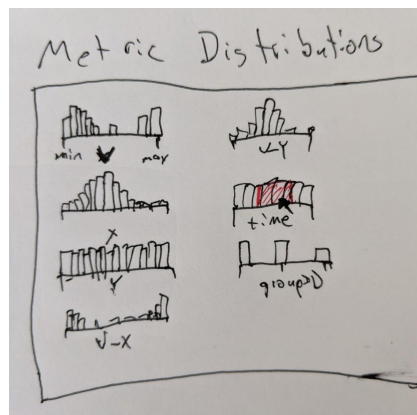 Metric Distributions
min max
X
Y
V-X
V-Y
time
groupID